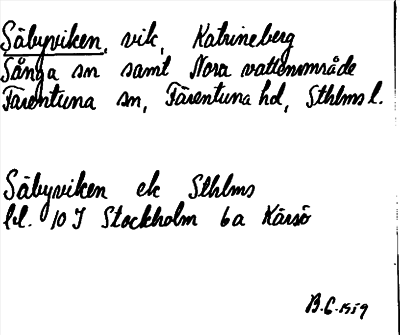 Säbyviken, vik, Katrineberg
Sånga sn samt Nora vattenområde
Färentuna sn, Färentuna hd, Sthlms l.
Säbyviken ek Sthlms
bl. 10 I Stockholm 6a Kärsö
B.G. 1959